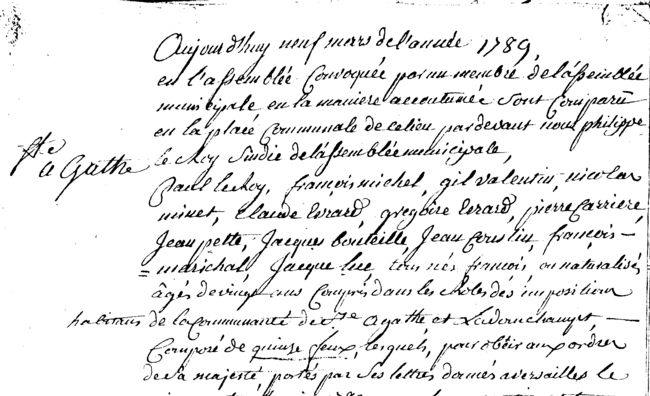 Aujourd'huy neuf mars de l'année 1789,
en l'assemblée Convoquée par un membre de l'assemblée
municipale en la maniere accoutumée sont Comparu
en la place Communale de ce lieu par devant nous philippe
Ste
a Gathe
le Roy Sindic de l'assemblée municipale,
Paul le Roy, françois michel, gil valentin, nicolas
minet, Claude Evrard, gregoire Evrard, pierre Carriere,
Jean pette, Jacques bouteille, Jean Couslin, françois -
= marichal, Jacque luc, tous nés françois ou naturalisés
âgés de vingt ans Compris dans les Roles des impositions
habitans de la Communauté de Ste Agathe et Ladonchamps -
Composé de quinze feux, lesquels, pour obéir aux ordres
de sa majesté, portés par ses lettres données a versailles le